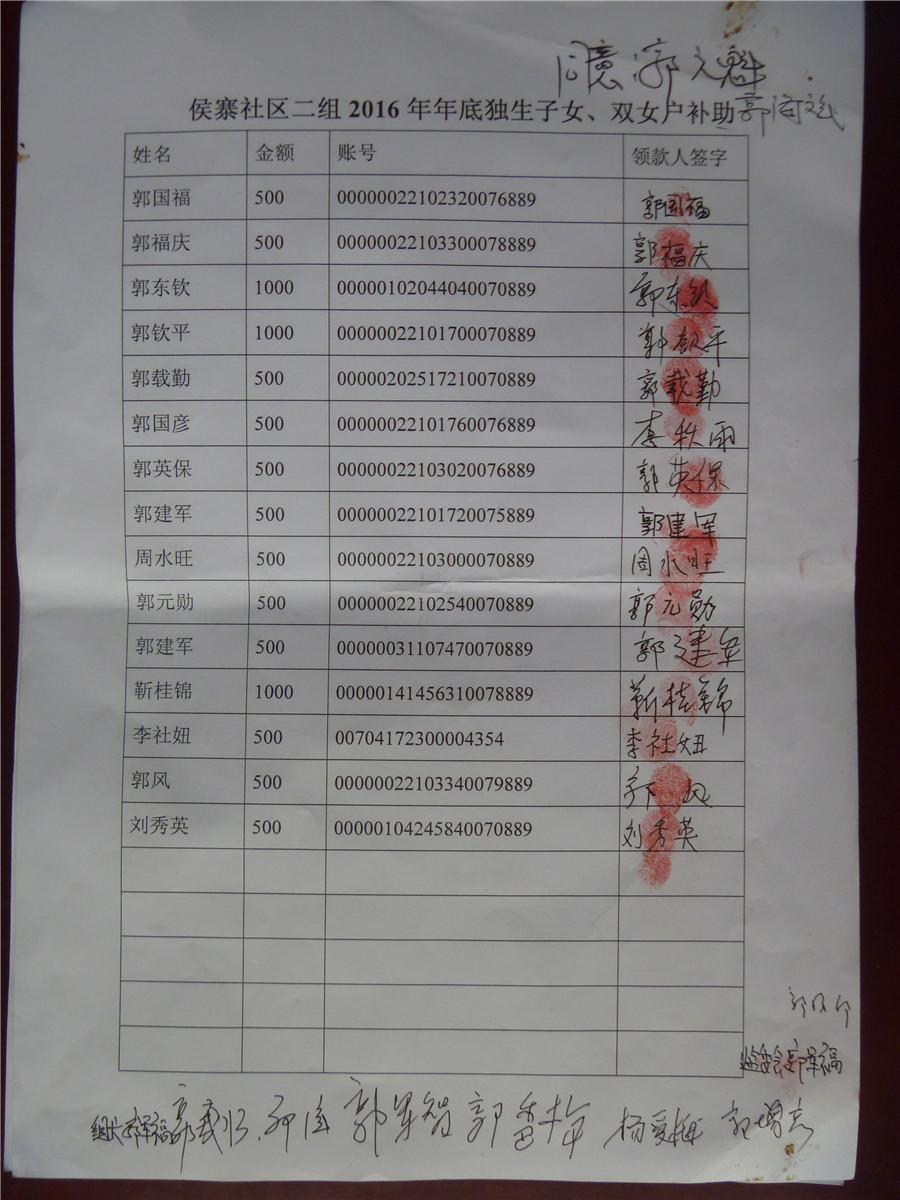 同意 郭元魁
侯寨社区二组 2016 年年底独生子女、双女户补助
姓名 金额 账号 领款人签字
郭国福 500 00000022102320076889 郭国福
郭福庆 500 00000022103300078889 郭福庆
郭东钦 1000 00000102044040070889 郭东钦
郭钦平 1000 00000022101700070889 郭钦平
郭载勤 500 00000202517210070889 郭载勤
郭国彦 500 00000022101760076889 李秋雨
郭英保 500 00000022103020076889 郭英保
郭建军 500 00000022101720075889 郭建军
周水旺 500 00000022103000070889 周水旺
郭元勋 500 00000022102540070889 郭元勋
郭建军 500 00000031107470070889 郭建军
靳桂锦 1000 00000141456310078889 靳桂锦
李社妞 500 00704172300004354 李社妞
郭风 500 00000022103340079889 郭风
刘秀英 500 00000104245840070889 刘秀英
杨爱梅